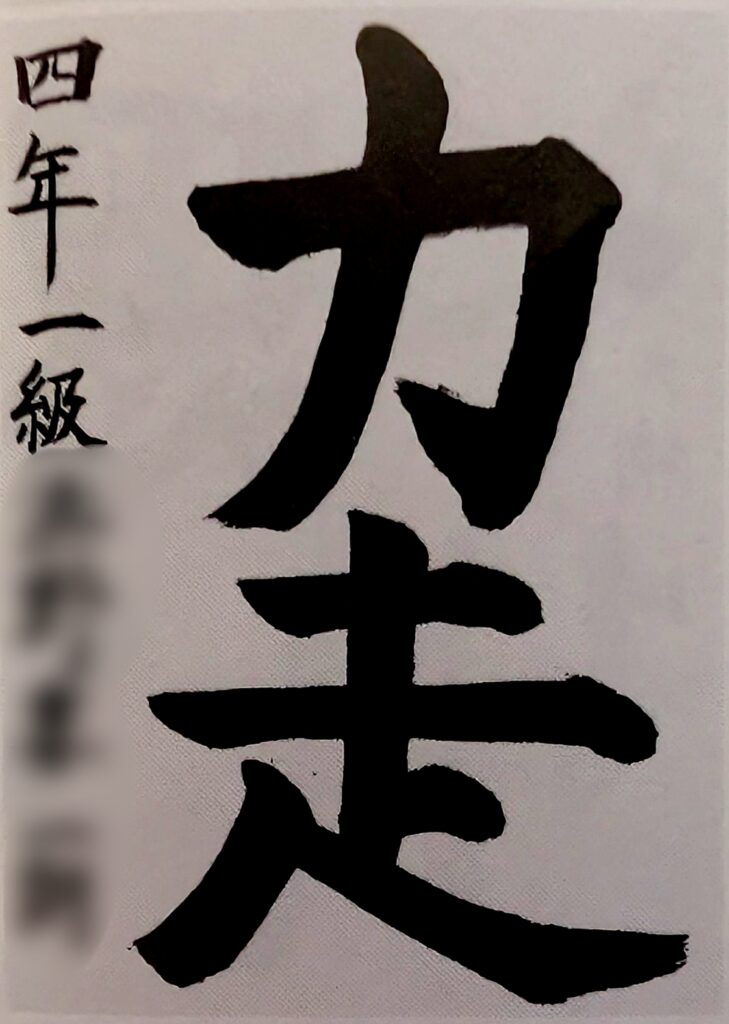 力走
四年一級